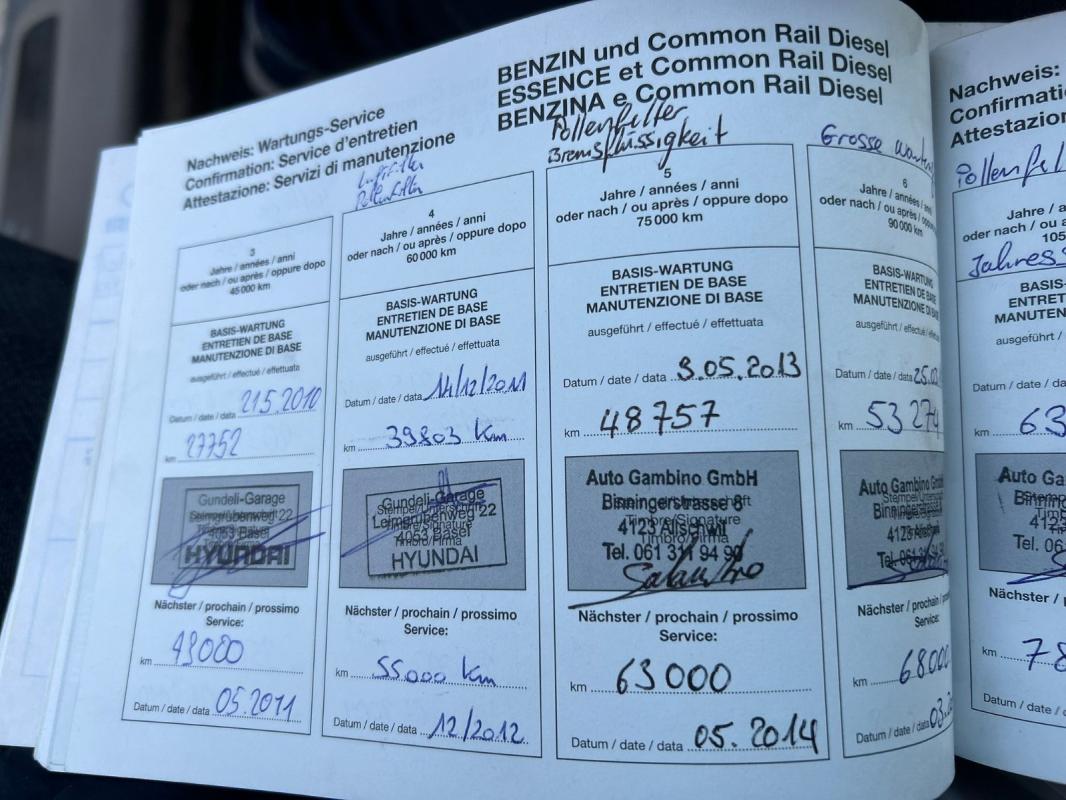 BENZIN und Common Rail Diesel
ESSENCE et Common Rail Diesel
BENZINA e Common Rail Diesel
Nachweis: Wartungs-Service
Confirmation: Service d'entretien
Attestazione: Servizi di manutenzione
Jahre / années / anni
oder nach / ou après / oppure dopo
45 000 km
BASIS-WARTUNG
ENTRETIEN DE BASE
MANUTENZIONE DI BASE
ausgeführt / effectué / effettuata
Datum / date / data 21.5.2010
km 27752
Gundeli-Garage
4053 Basel
HYUNDAI
Nächster / prochain / prossimo
Service:
km
Datum / date / data 05.2011
Luftfilter
Pollenfilter
4
Jahre / années / anni
oder nach / ou après / oppure dopo
60 000 km
BASIS-WARTUNG
ENTRETIEN DE BASE
MANUTENZIONE DI BASE
ausgeführt / effectué / effettuata
Datum / date / data 14/12/2011
km 39803 Km
Gundeli-Garage
Leimenweg 22
4053 Basel
HYUNDAI
Nächster / prochain / prossimo
Service:
km 55000 Km
Datum / date / data 12/2012
Pollenfilter
Bremsflüssigkeit
5
Jahre / années / anni
oder nach / ou après / oppure dopo
75 000 km
BASIS-WARTUNG
ENTRETIEN DE BASE
MANUTENZIONE DI BASE
ausgeführt / effectué / effettuata
Datum / date / data 3.05.2013
km 48757
Auto Gambino GmbH
Binningerstrasse 8
4123 Allschwil
Tel. 061 311 94 90
Nächster / prochain / prossimo
Service:
km 63000
Datum / date / data 05.2014
Grosse
6
Jahre / années /
oder nach / ou après /
90 000 km
BASIS-WARTUNG
ENTRETIEN DE BASE
MANUTENZIONE DI
ausgeführt / effectué /
Datum / date / data 25.0
km 53 274
Auto Gambino Gm
4123
Tel. 061
Nächster / prochain
Service:
km 68000
Datum / date / data 03.
Nachweis:
Confirmati
Attestazion
Pollenfil
Jahre /
oder nach /
105
Jahres
BASIS-
ENTRET
MANUTEN
ausgeführt /
Datum / date /
km 63
Auto Gam
4123
Tel. 06
Nächster /
km 78
Datum / date /